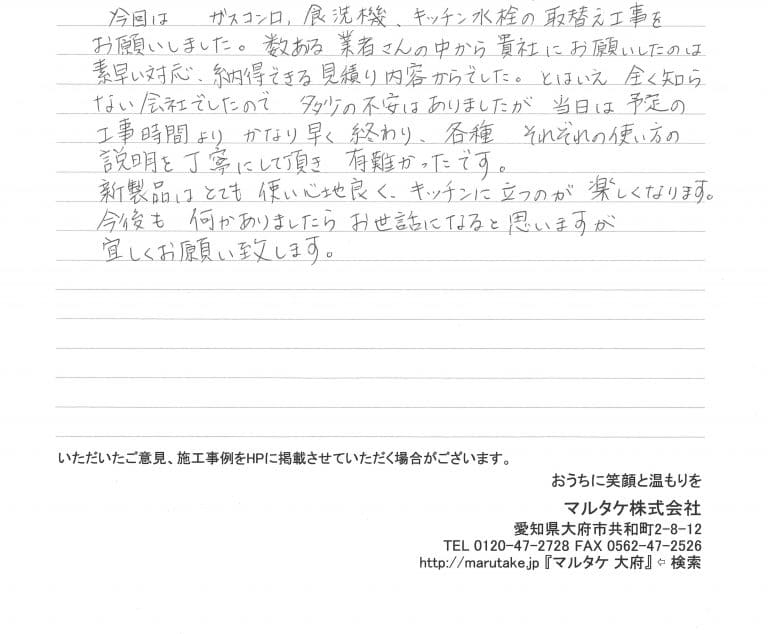 今回は ガスコンロ、食洗機、キッチン水栓の取替え工事を
お願いしました。数ある業者さんの中から貴社にお願いしたのは
素早い対応、納得できる見積り内容からでした。とはいえ 全く知ら
ない会社でしたので 多少の不安はありましたが 当日は予定の
工事時間より かなり早く終わり、各種 それぞれの使い方の
説明を丁寧にして頂き 有難かったです。
新製品はとても使い心地良く、キッチンに立つのが楽しくなります。
今後も 何かありましたらお世話になると思いますが
宜しくお願い致します。
いただいたご意見、施工事例をHPに掲載させていただく場合がございます。
おうちに笑顔と温もりを
マルタケ株式会社
愛知県大府市共和町2-8-12
TEL 0120-47-2728 FAX 0562-47-2526
http://marutake.jp『マルタケ 大府』⇦ 検索